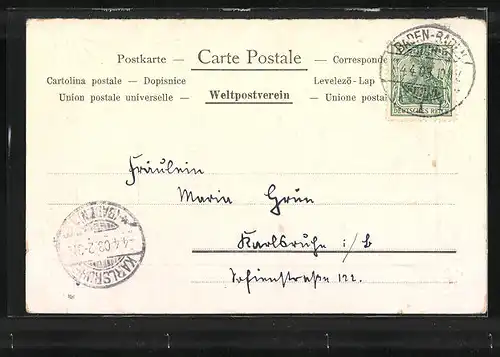 Postkarte — Carte Postale — Corresponde
Cartolina postale — Dopisnice Levelező-Lap
Union postale universelle — Weltpostverein — Unione postal
BADEN-BADEN
4.4.03
1
DEUTSCHES REICH
Fräulein
Maria Grün
Karlsruhe i/B
Sofienstraße 122.
KARLSRUHE
4.4.03